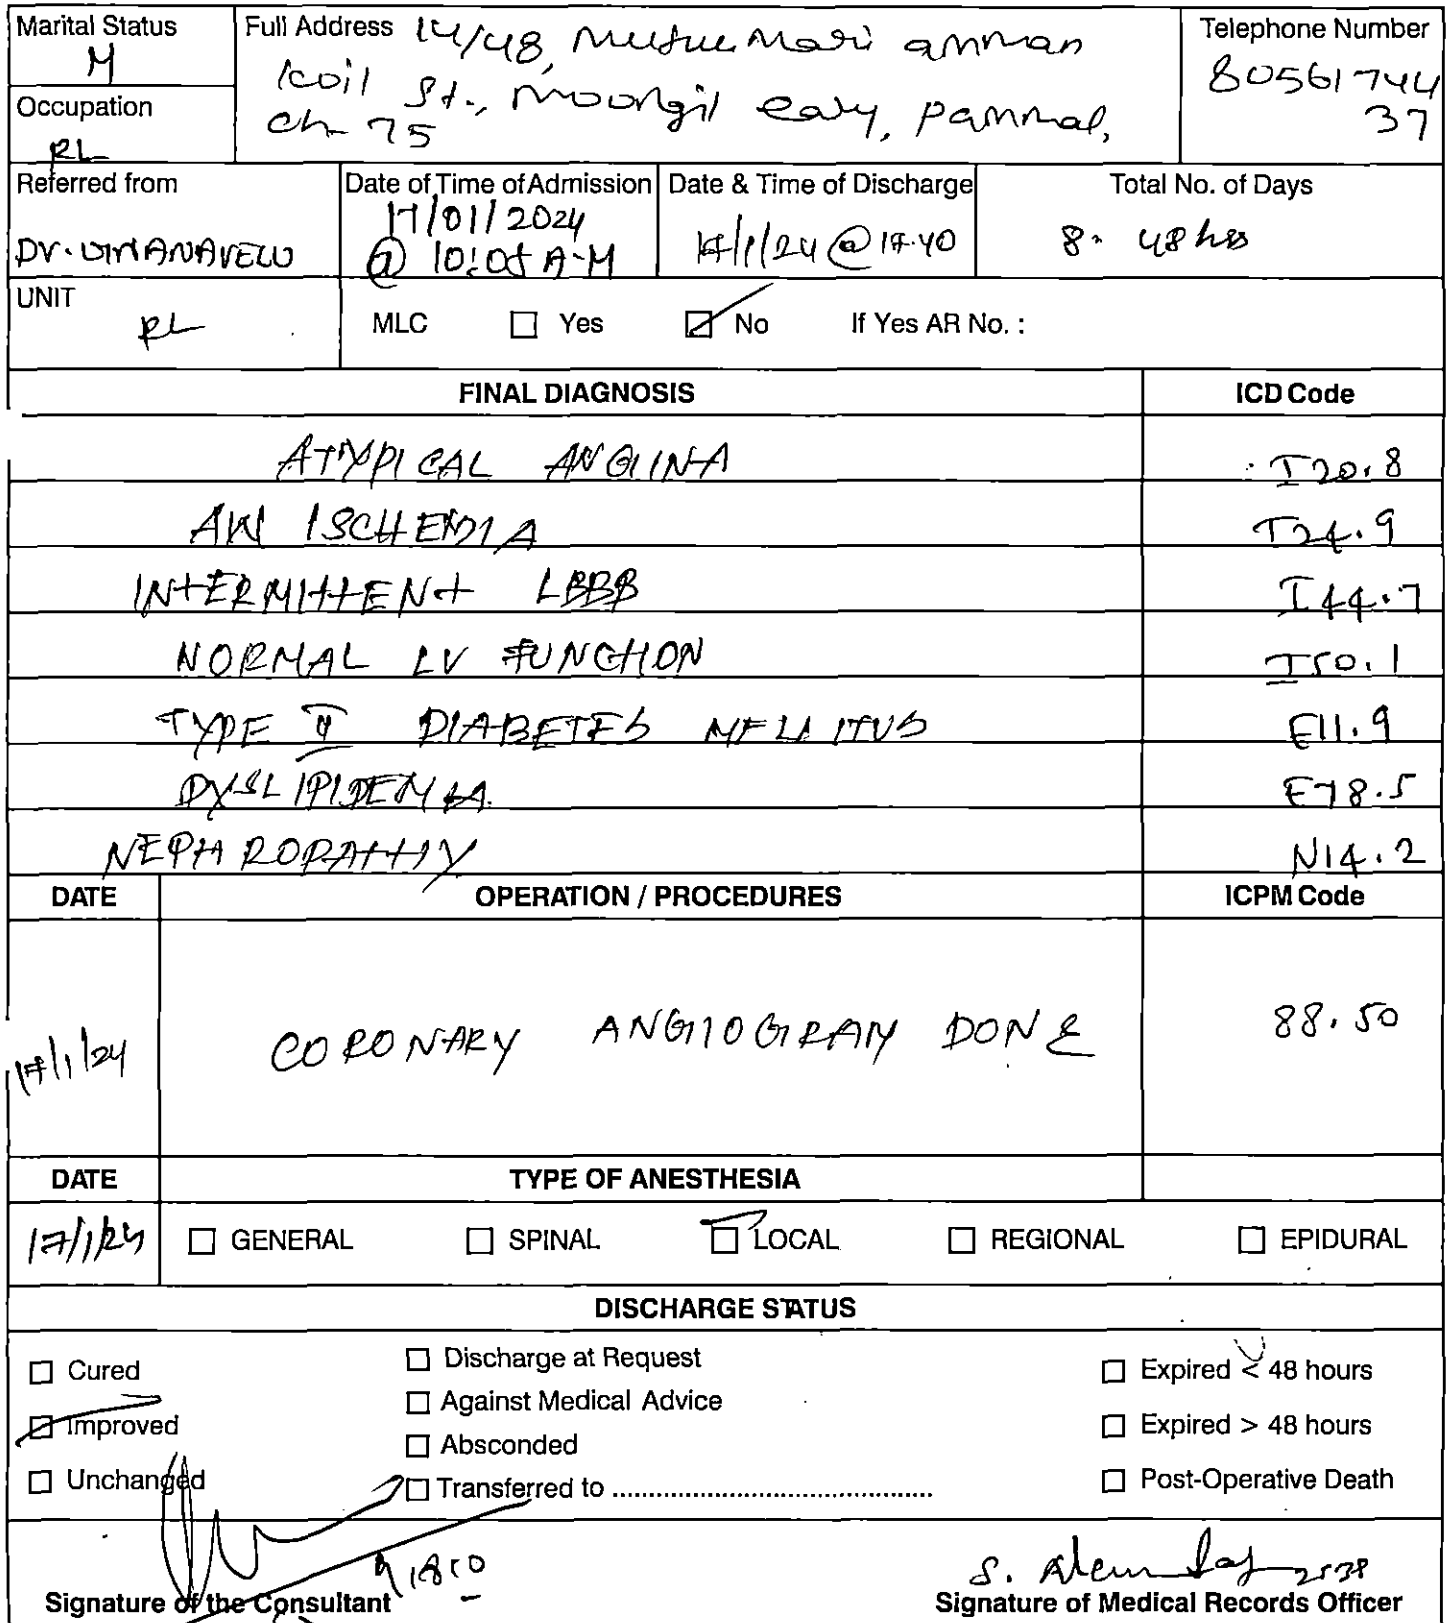 Marital Status
M
Full Address 14/48, Muthu Mari amman
koil St., Moongil eary, Pammal,
Ch-75
Telephone Number
80561744
37
Occupation
RL
Referred from
Date of Time of Admission
17/01/2024
@ 10:05 A.M
Date & Time of Discharge
17/1/24 @ 17.40
Total No. of Days
8. 48 hrs
UNIT
RL
MLC ☐ Yes ☑ No If Yes AR No. :
FINAL DIAGNOSIS ICD Code
ATYPICAL ANGINA I20.8
AW ISCHEMIA I24.9
INTERMITTENT LBBB I44.7
NORMAL LV FUNCTION I50.1
TYPE II DIABETES MELLITUS E11.9
DYSLIPIDEMIA E78.5
NEPHROPATHY N14.2
DATE OPERATION / PROCEDURES ICPM Code
17/1/24 CORONARY ANGIOGRAM DONE 88.50
DATE TYPE OF ANESTHESIA
17/1/24 ☐ GENERAL ☐ SPINAL ☑ LOCAL ☐ REGIONAL ☐ EPIDURAL
DISCHARGE STATUS
☐ Cured
☑ Improved
☐ Unchanged
☐ Discharge at Request
☐ Against Medical Advice
☐ Absconded
☐ Transferred to ..........................................
☐ Expired < 48 hours
☐ Expired > 48 hours
☐ Post-Operative Death
Signature of the Consultant
Signature of Medical Records Officer